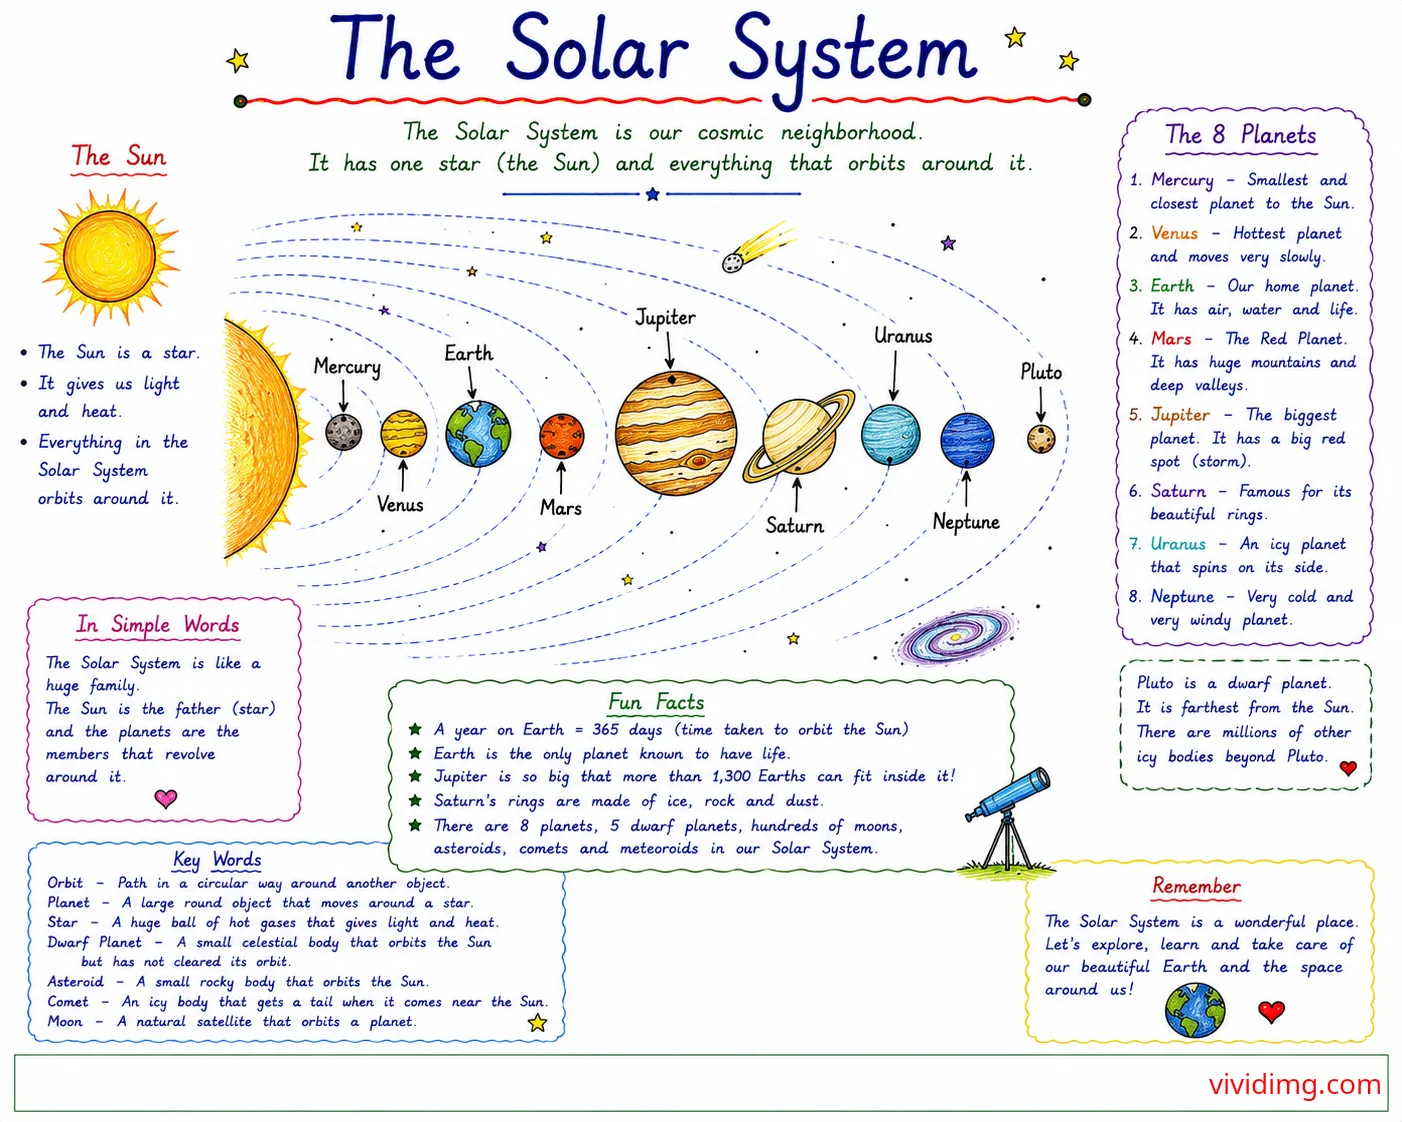 The Solar System
The Solar System is our cosmic neighborhood.
It has one star (the Sun) and everything that orbits around it.
The Sun
• The Sun is a star.
• It gives us light
and heat.
• Everything in the
Solar System
orbits around it.
Mercury
Venus
Earth
Mars
Jupiter
Saturn
Uranus
Neptune
Pluto
The 8 Planets
1. Mercury – Smallest and
closest planet to the Sun.
2. Venus – Hottest planet
and moves very slowly.
3. Earth – Our home planet.
It has air, water and life.
4. Mars – The Red Planet.
It has huge mountains and
deep valleys.
5. Jupiter – The biggest
planet. It has a big red
spot (storm).
6. Saturn – Famous for its
beautiful rings.
7. Uranus – An icy planet
that spins on its side.
8. Neptune – Very cold and
very windy planet.
Pluto is a dwarf planet.
It is farthest from the Sun.
There are millions of other
icy bodies beyond Pluto.
In Simple Words
The Solar System is like a
huge family.
The Sun is the father (star)
and the planets are the
members that revolve
around it.
Fun Facts
A year on Earth = 365 days (time taken to orbit the Sun)
Earth is the only planet known to have life.
Jupiter is so big that more than 1,300 Earths can fit inside it!
Saturn's rings are made of ice, rock and dust.
There are 8 planets, 5 dwarf planets, hundreds of moons,
asteroids, comets and meteoroids in our Solar System.
Key Words
Orbit – Path in a circular way around another object.
Planet – A large round object that moves around a star.
Star – A huge ball of hot gases that gives light and heat.
Dwarf Planet – A small celestial body that orbits the Sun
but has not cleared its orbit.
Asteroid – A small rocky body that orbits the Sun.
Comet – An icy body that gets a tail when it comes near the Sun.
Moon – A natural satellite that orbits a planet.
Remember
The Solar System is a wonderful place.
Let's explore, learn and take care of
our beautiful Earth and the space
around us!
vividimg.com